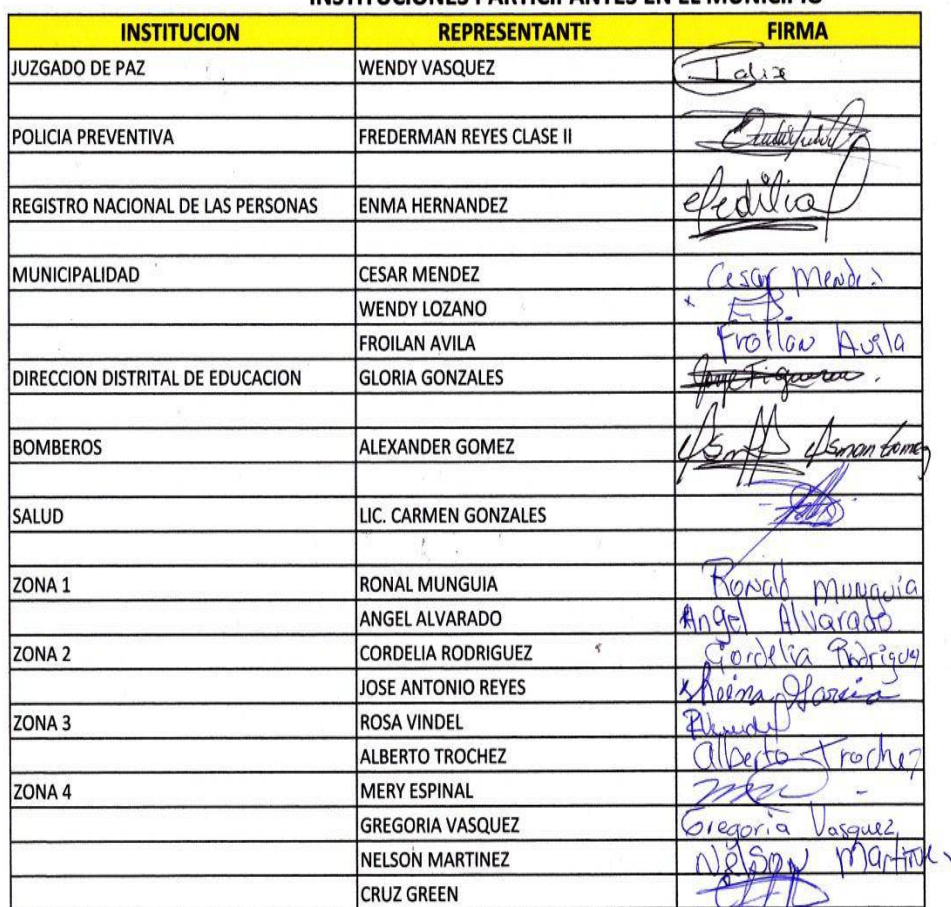 INSTITUCIONES PARTICIPANTES EN EL MUNICIPIO
INSTITUCION REPRESENTANTE FIRMA
JUZGADO DE PAZ WENDY VASQUEZ
POLICIA PREVENTIVA FREDERMAN REYES CLASE II
REGISTRO NACIONAL DE LAS PERSONAS ENMA HERNANDEZ
MUNICIPALIDAD CESAR MENDEZ Cesar Mendez
WENDY LOZANO
FROILAN AVILA Froilan Avila
DIRECCION DISTRITAL DE EDUCACION GLORIA GONZALES
BOMBEROS ALEXANDER GOMEZ Osman Gomez
SALUD LIC. CARMEN GONZALES
ZONA 1 RONAL MUNGUIA Ronald Munguía
ANGEL ALVARADO Angel Alvarado
ZONA 2 CORDELIA RODRIGUEZ Cordelia Rodrigue
JOSE ANTONIO REYES Garcia
ZONA 3 ROSA VINDEL
ALBERTO TROCHEZ Alberto Trochez
ZONA 4 MERY ESPINAL
GREGORIA VASQUEZ Gregoria Vasquez
NELSON MARTINEZ Nelson Martinez
CRUZ GREEN